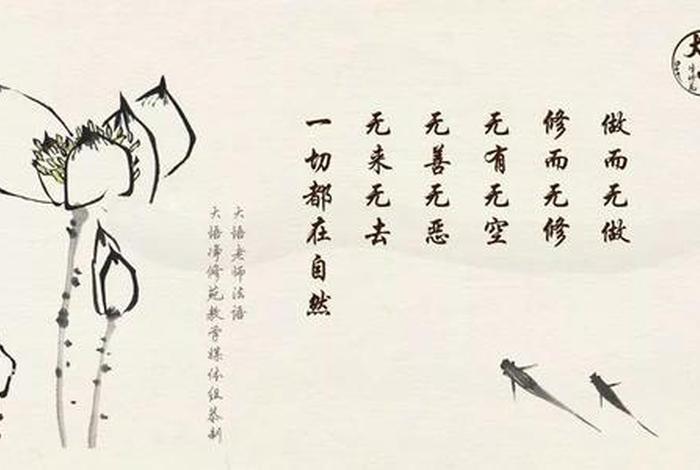 做而无做
修而无修
无有无空
无善无恶
无来无去
一切都在自然
大语老师法语
大语净修苑教学媒体组恭制